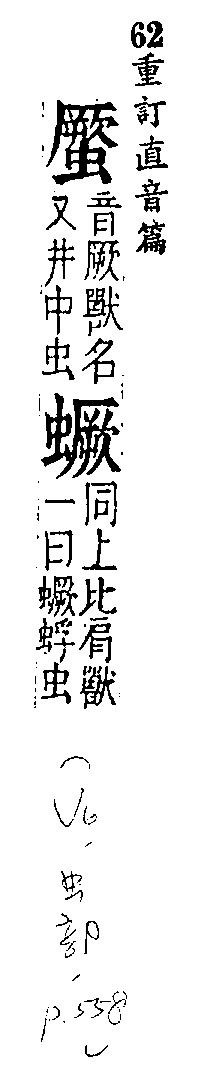 62重訂直音篇
蟨音厥獸名
又井中虫
蟩同上比肩獸
一曰蟩蜉虫
(V6,
虫部,
p.558)